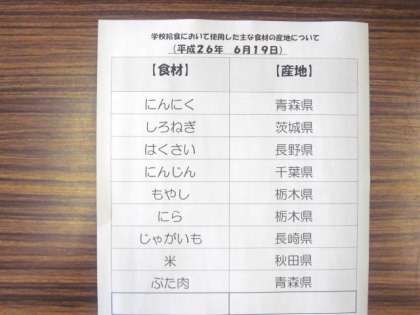 学校給食において使用した主な食材の産地について
(平成26年 6月19日)
【食材】 【産地】
にんにく 青森県
しろねぎ 茨城県
はくさい 長野県
にんじん 千葉県
もやし 栃木県
にら 栃木県
じゃがいも 長崎県
米 秋田県
ぶた肉 青森県